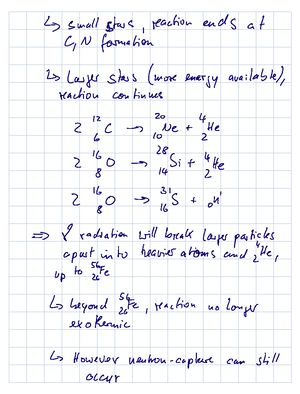 ↳ small stars, reaction ends at
C, N formation
↳ Larger stars (more energy available),
reaction continues
2 ¹²₆C → ²⁰₁₀Ne + ⁴₂He
2 ¹⁶₈O → ²⁸₁₄Si + ⁴₂He
2 ¹⁶₈O → ³¹₁₆S + ₀n¹
⇒ γ radiation will break larger particles
apart into heavier atoms and ⁴₂He,
up to ⁵⁶₂₆Fe
↳ beyond ⁵⁶₂₆Fe, reaction no longer
exothermic
↳ However neutron-capture can still
occur